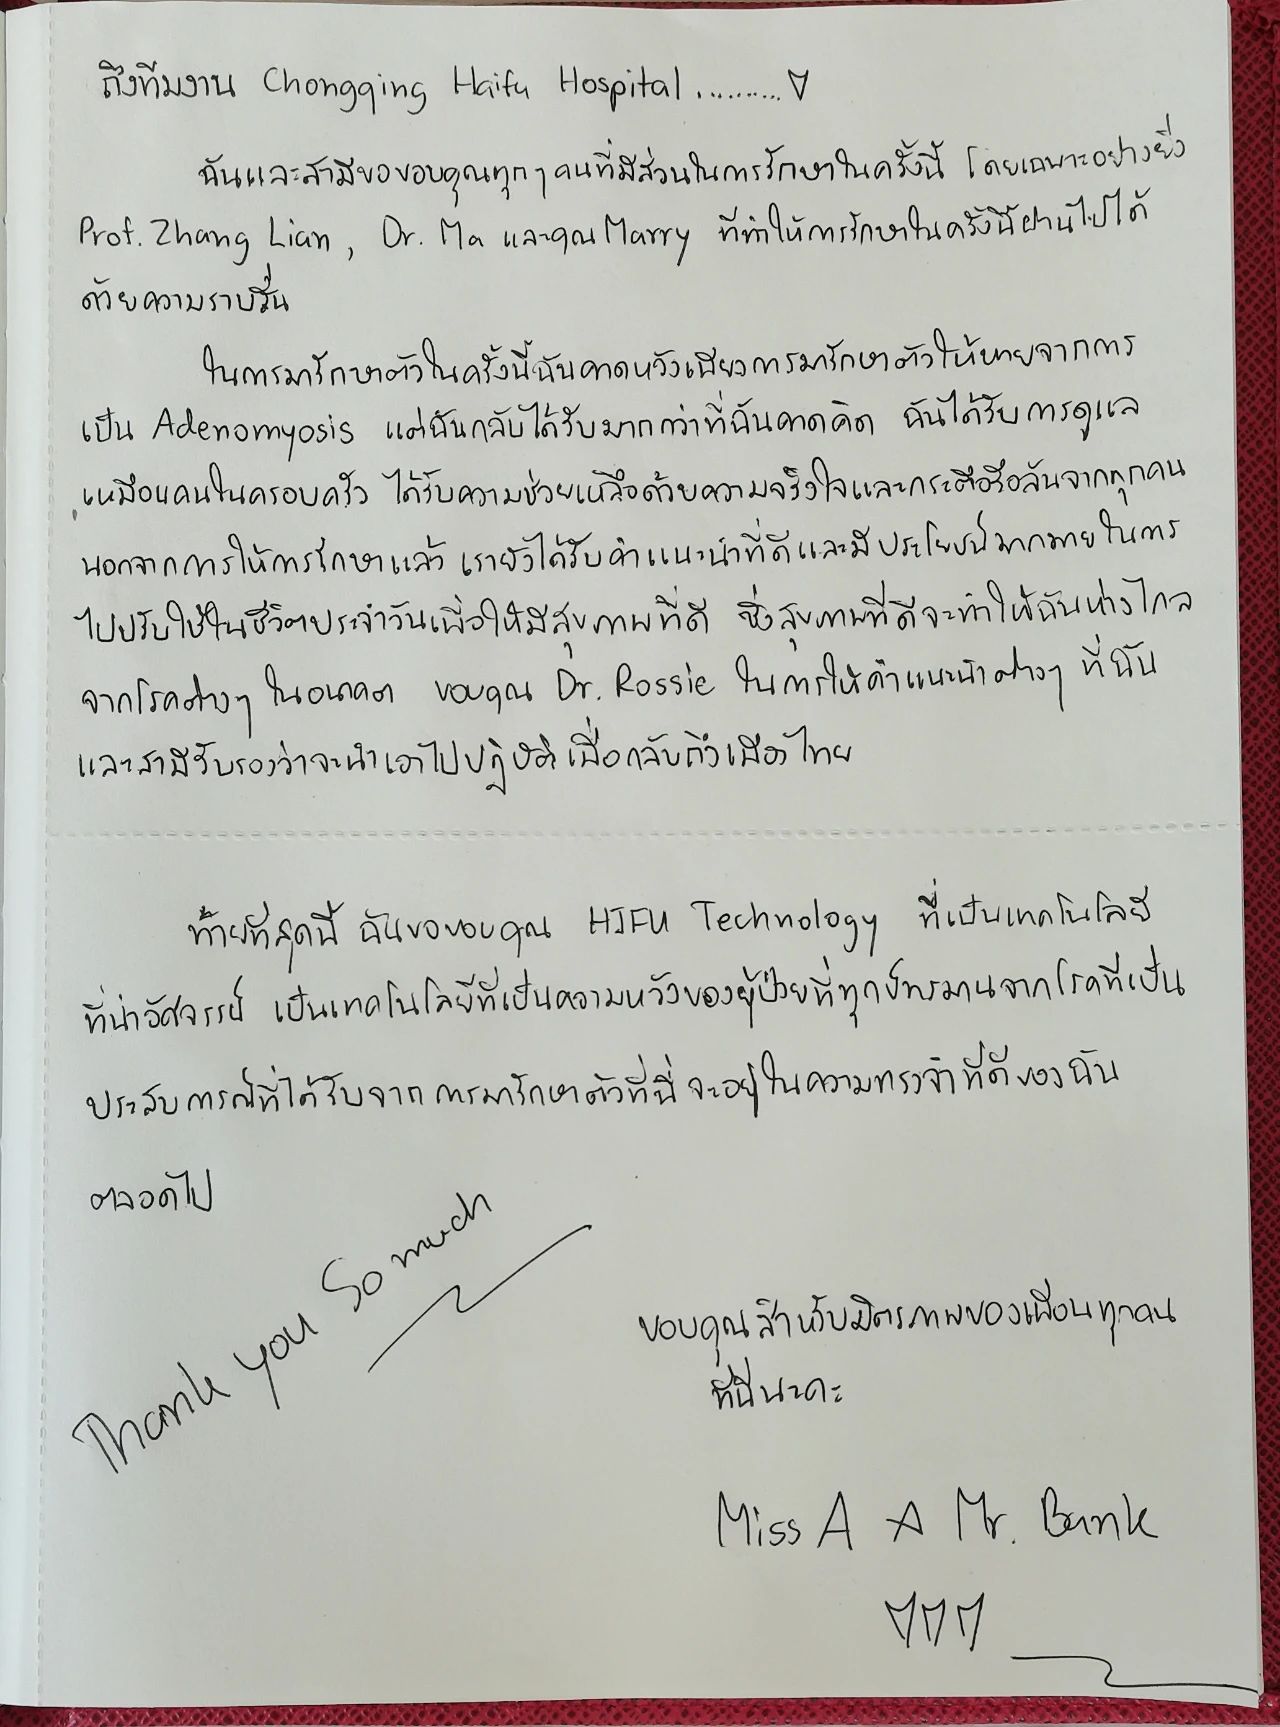 ถึงทีมงาน Chongqing Haifu Hospital..........♡
ฉันและสามีขอขอบคุณทุกๆคนที่มีส่วนในการรักษาในครั้งนี้ โดยเฉพาะอย่างยิ่ง
Prof. Zhang Lian, Dr. Ma และคุณ Marry ที่ทำให้การรักษาในครั้งนี้ผ่านไปได้
ด้วยความราบรื่น
ในการมารักษาตัวในครั้งนี้ฉันคาดหวังเพียงการมารักษาตัวให้หายจากการ
เป็น Adenomyosis แต่ฉันกลับได้รับมากกว่าที่ฉันคาดคิด ฉันได้รับการดูแล
เหมือนคนในครอบครัว ได้รับความช่วยเหลือด้วยความจริงใจและกระตือรือล้นจากทุกคน
นอกจากการให้การรักษาแล้ว เรายังได้รับคำแนะนำที่ดีและมีประโยชน์มากมายในการ
ไปปรับใช้ในชีวิตประจำวันเพื่อให้มีสุขภาพที่ดี ซึ่งสุขภาพที่ดีจะทำให้ฉันห่างไกล
จากโรคต่างๆ ในอนาคต ขอบคุณ Dr. Rossie ในการให้คำแนะนำต่างๆ ที่ฉัน
และสามีรับรองว่าจะนำเอาไปปฏิบัติเมื่อกลับถึงเมืองไทย
ท้ายที่สุดนี้ ฉันขอขอบคุณ HIFU Technology ที่เป็นเทคโนโลยี
ที่น่าอัศจรรย์ เป็นเทคโนโลยีที่เป็นความหวังของผู้ป่วยที่ทุกข์ทรมานจากโรคที่เป็น
ประสบการณ์ที่ได้รับจากการมารักษาตัวที่นี่จะอยู่ในความทรงจำที่ดีของฉัน
ตลอดไป
Thank you So much
ขอบคุณสำหรับมิตรภาพของเพื่อนทุกคน
ที่นี่นะคะ
Miss A ☆ Mr. Bank
♡♡♡